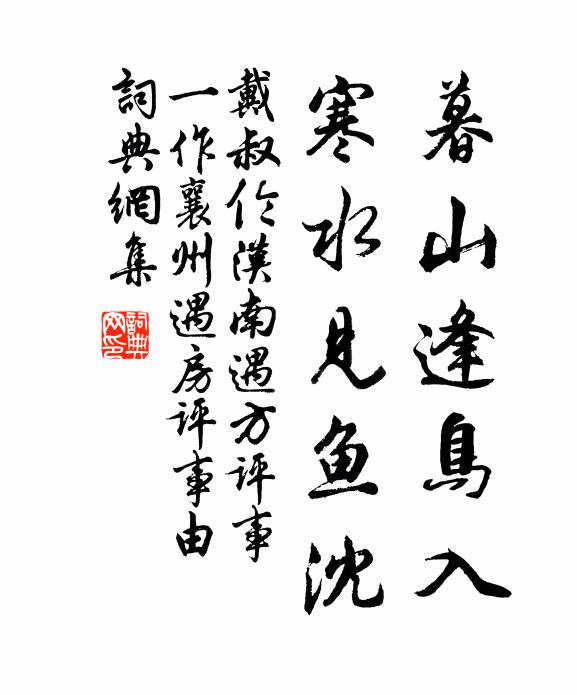 暮山逢鳥入
寒水見鱼沈
戴叔伦漢南遇方評事
一作襄州遇房評事由
詞典網集
詞典網印